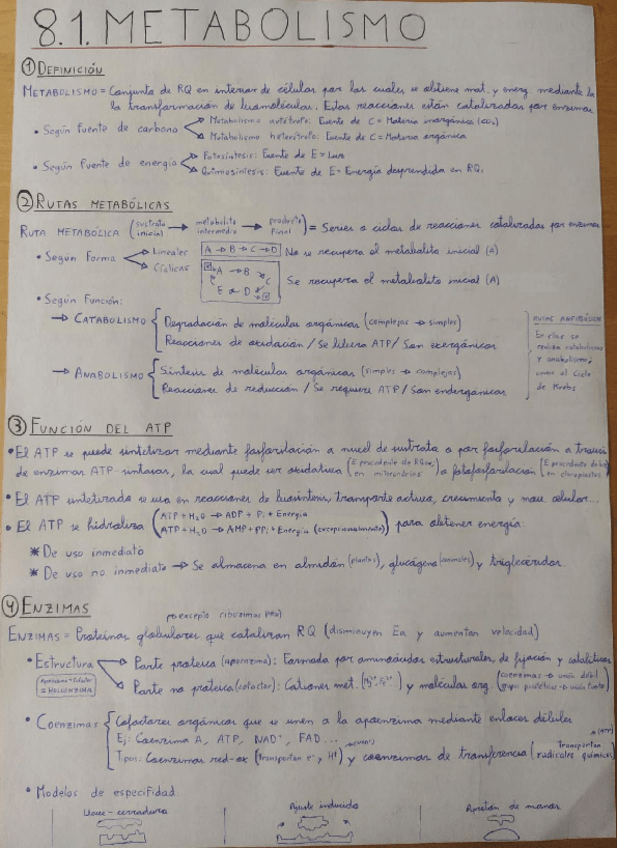 8.1. METABOLISMO
① DEFINICIÓN
METABOLISMO = Conjunto de RQ en interior de células por las cuales se obtiene mat. y energ. mediante la
la transformación de biomoléculas. Estas reacciones están catalizadas por enzimas
• Según fuente de carbono
Metabolismo autótrofo: Fuente de C = Materia inorgánica (CO₂)
Metabolismo heterótrofo: Fuente de C = Materia orgánica
• Según fuente de energía
Fotosíntesis: Fuente de E = Luz
Quimiosíntesis: Fuente de E = Energía desprendida en RQ.
② RUTAS METABÓLICAS
RUTA METABÓLICA (sustrato inicial → metabolito intermedio → producto final) = Series o ciclos de reacciones catalizadas por enzimas
• Según Forma
Lineales A → B → C → D No se recupera el metabolito inicial (A)
Cíclicas A → B C E D Se recupera el metabolito inicial (A)
• Según Función:
→ CATABOLISMO { Degradación de moléculas orgánicas (complejas → simples)
Reacciones de oxidación / Se libera ATP / Son exergónicas
→ ANABOLISMO { Síntesis de moléculas orgánicas (simples → complejas)
Reacciones de reducción / Se requiere ATP / Son endergónicas
RUTAS ANFIBÓLICAS
En ellas se
realiza catabolismo
y anabolismo,
como el Ciclo
de Krebs
③ FUNCIÓN DEL ATP
• El ATP se puede sintetizar mediante fosforilación a nivel de sustrato o por fosforilación a través
de enzimas ATP-sintasas, la cual puede ser oxidativa (E procedente de RQox, en mitocondrias) o fotofosforilación (E procedente de luz, en cloroplastos)
• El ATP sintetizado se usa en reacciones de biosíntesis, transporte activo, crecimiento y mov. celular...
• El ATP se hidroliza (ATP + H₂O → ADP + Pi + Energía
ATP + H₂O → AMP + PPi + Energía (excepcionalmente)) para obtener energía:
* De uso inmediato
* De uso no inmediato → Se almacena en almidón (plantas), glucógeno (animales) y triglicéridos.
④ ENZIMAS
(excepto ribozimas ARN)
ENZIMAS = Proteínas globulares que catalizan RQ (disminuyen Ea y aumentan velocidad)
• Estructura
Apoenzima + Cofactor
= HOLOENZIMA
Parte proteica (apoenzima): Formada por aminoácidos estructurales, de fijación y catalíticos
Parte no proteica (cofactor): Cationes met. (Mg²⁺, Fe²⁺) y moléculas org. (coenzimas → unión débil
grupos prostéticos → unión fuerte)
• Coenzimas { Cofactores orgánicos que se unen a la apoenzima mediante enlaces débiles
Ej: Coenzima A, ATP, NAD⁺, FAD...
Tipos: Coenzimas red-ox (transportan e⁻, H⁺) y coenzimas de transferencia (transportan radicales químicos)
• Modelos de especifidad:
Llave-cerradura
Ajuste inducido
Apretón de manos